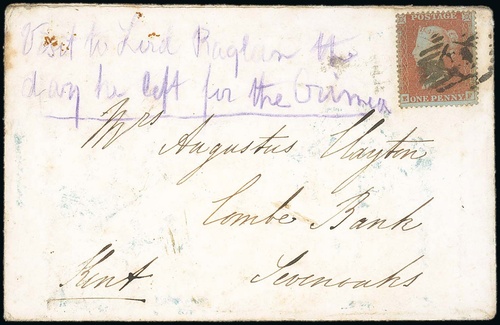 Visit to Lord Raglan the
day he left for the Crimea
POSTAGE
ONE PENNY
Mrs
Augustus Clayton
Combe Bank
Sevenoaks
Kent